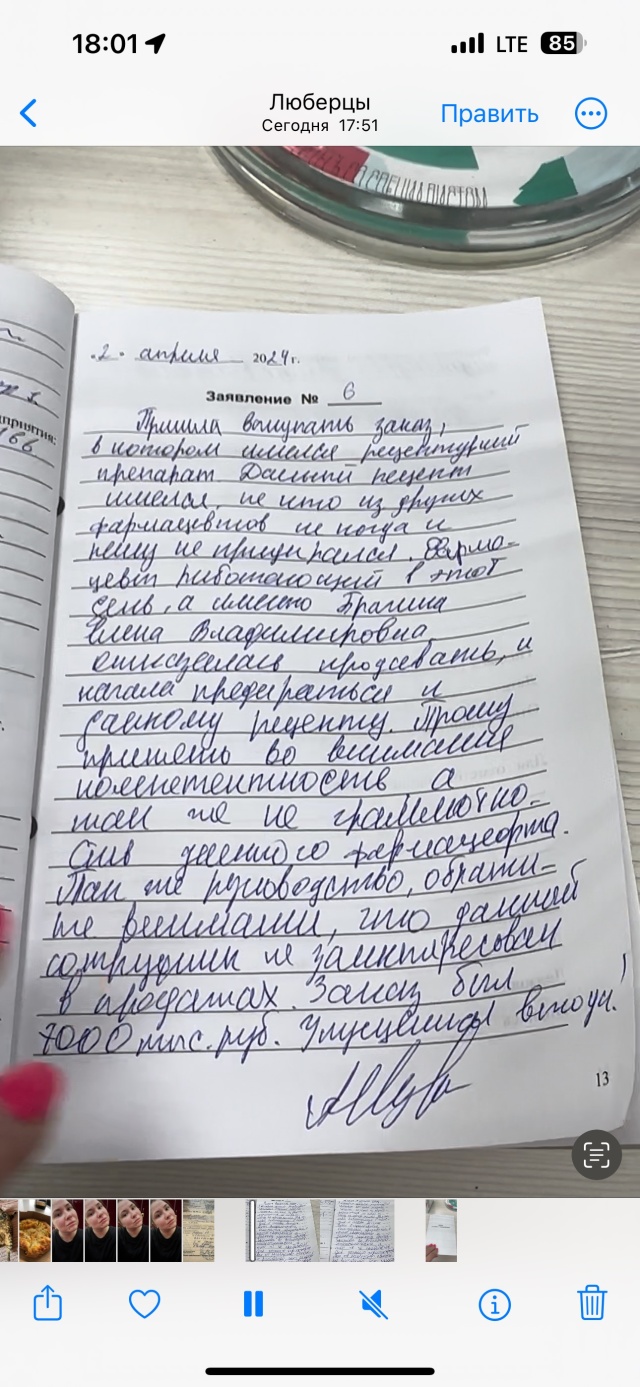 18:01
LTE
85
Люберцы
Сегодня 17:51
Править
приятия:
166
"2" апреля 2024 г.
Заявление № 6
Пришла выкупать заказ,
в котором имелся рецептурний
препарат. Данный рецепт
имелся, не кто из других
фармацевтов не когда к
нему не придирался. Фарма-
цевт работающий в этот
день, а именно Брагина
Елена Владимировна,
отказалась продавать, и
начала предираться к
данному рецепту. Прошу
принять во внимание
компетентность, а
так же не граммотно-
сть данного фармацевта.
Так же руководство, обрати-
те внимании, что данный
сотрудник не заинтиресован
в продажах. Заказ был
7000 тыс. руб. Упущенный выгоди!
13